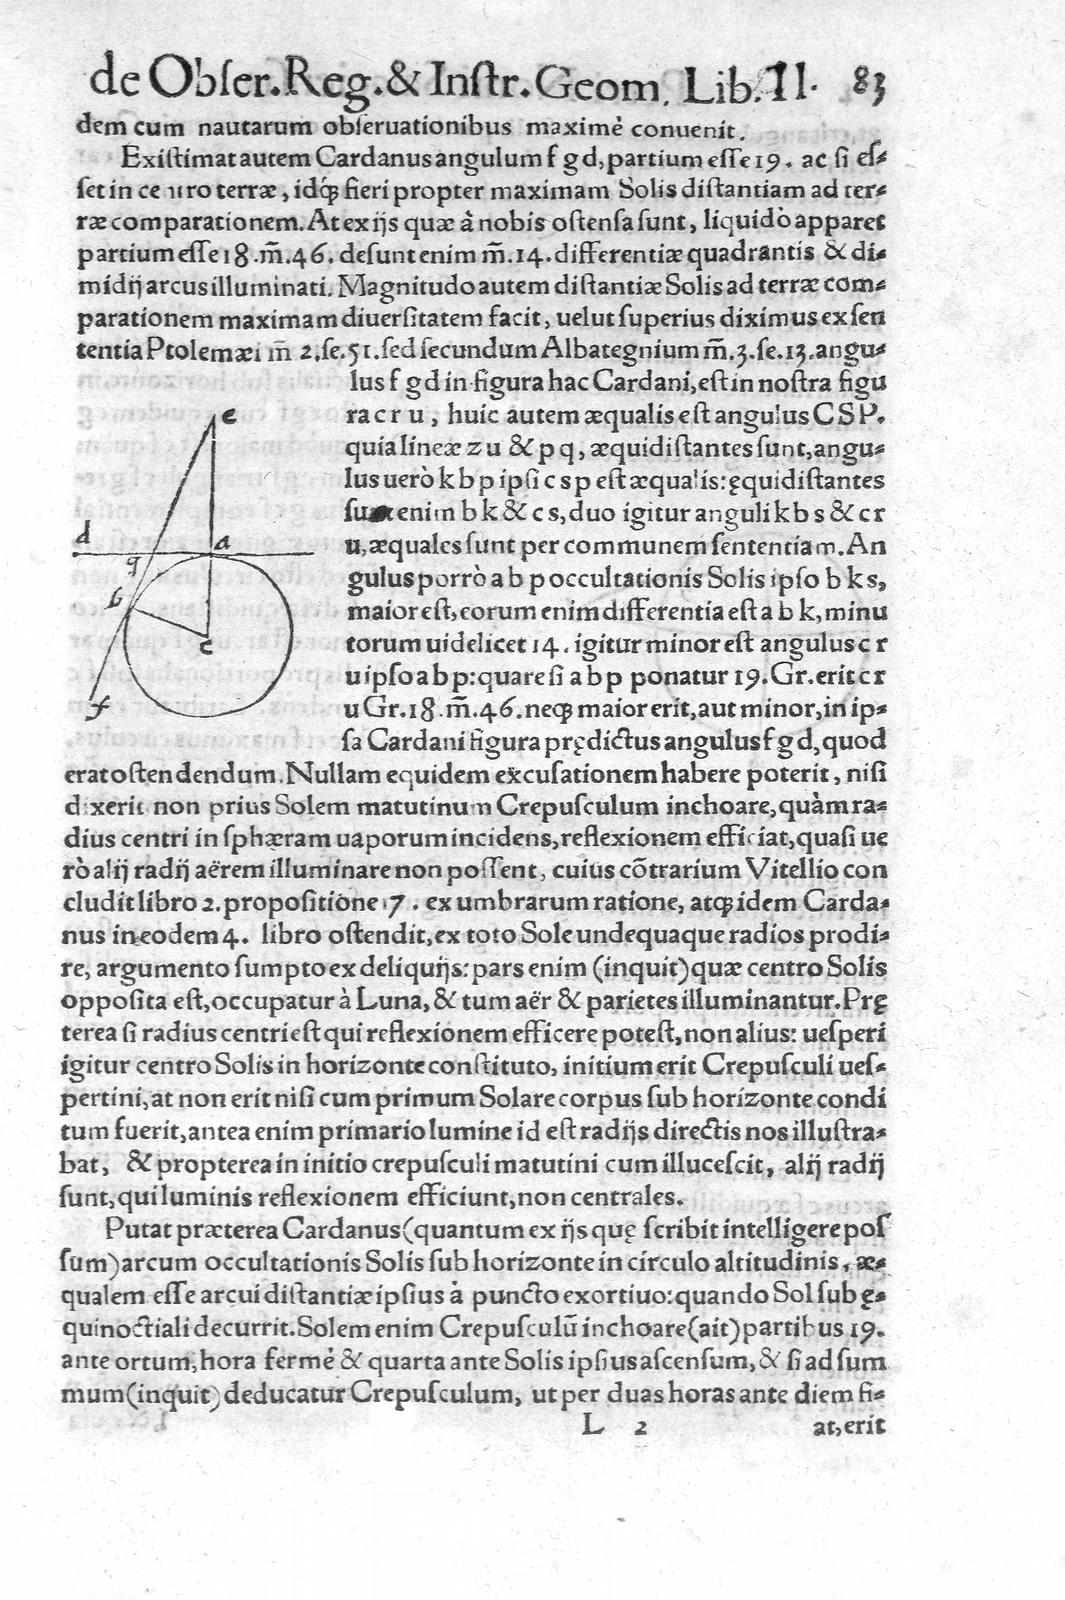 de Obſer. Reg. & Inſtr. Geom. Lib. II. 83
dem cum nautarum obſeruationibus maximè conuenit.
Exiſtimat autem Cardanus angulum f g d, partium eſſe 19. ac ſi eſ-
ſet in centro terræ, idq́; fieri propter maximam Solis diſtantiam ad ter-
ræ comparationem. At ex ijs quæ à nobis oſtenſa ſunt, liquidò apparet
partium eſſe 18. m̃. 46. deſunt enim m̃. 14. differentiæ quadrantis & di-
midij arcus illuminati. Magnitudo autem diſtantiæ Solis ad terræ com-
parationem maximam diuerſitatem facit, uelut ſuperius diximus ex ſen
tentia Ptolemæi m̃ 2. ſe. 51. ſed ſecundum Albategnium m̃. 3. ſe. 13. angu-
lus f g d in figura hac Cardani, eſt in noſtra figu
ra c r u, huic autem æqualis eſt angulus C S P.
quia lineæ z u & p q, æquidiſtantes ſunt, angu-
lus uerò k b p ipſi c s p eſt æqualis: ęquidiſtantes
enim b k & c s, duo igitur anguli k b s & c r
u, æquales ſunt per communem ſententiam. An
gulus porrò a b p occultationis Solis ipſo b k s,
maior eſt, eorum enim differentia eſt a b k, minu
torum uidelicet 14. igitur minor eſt angulus c r
u ipſo a b p: quare ſi a b p ponatur 19. Gr. erit c r
u Gr. 18. m̃. 46. neq; maior erit, aut minor, in ip-
ſa Cardani figura prędictus angulus f g d, quod
erat oſtendendum. Nullam equidem excuſationem habere poterit, niſi
dixerit non prius Solem matutinum Crepuſculum inchoare, quàm ra-
dius centri in ſphæram uaporum incidens, reflexionem efficiat, quaſi ue
rò alij radij aërem illuminare non poſſent, cuius cõtrarium Vitellio con
cludit libro 2. propoſitione 7. ex umbrarum ratione, atq; idem Carda-
nus in eodem 4. libro oſtendit, ex toto Sole undequaque radios prodi-
re, argumento ſumpto ex deliquijs: pars enim (inquit) quæ centro Solis
oppoſita eſt, occupatur à Luna, & tum aër & parietes illuminantur. Prę
terea ſi radius centri eſt qui reflexionem efficere poteſt, non alius: ueſperi
igitur centro Solis in horizonte conſtituto, initium erit Crepuſculi ueſ-
pertini, at non erit niſi cum primum Solare corpus ſub horizonte condi
tum fuerit, antea enim primario lumine id eſt radijs directis nos illuſtra-
bat, & propterea in initio crepuſculi matutini cum illuceſcit, alij radij
ſunt, qui luminis reflexionem efficiunt, non centrales.
Putat præterea Cardanus (quantum ex ijs quę ſcribit intelligere poſ
ſum) arcum occultationis Solis ſub horizonte in circulo altitudinis, æ-
qualem eſſe arcui diſtantiæ ipſius à puncto exortiuo: quando Sol ſub ę-
quinoctiali decurrit. Solem enim Crepuſculũ inchoare (ait) partibus 19.
ante ortum, hora fermè & quarta ante Solis ipſius aſcenſum, & ſi ad ſum
mum (inquit) deducatur Crepuſculum, ut per duas horas ante diem fi-
L 2 at, erit
e
d a
g
b
c
f